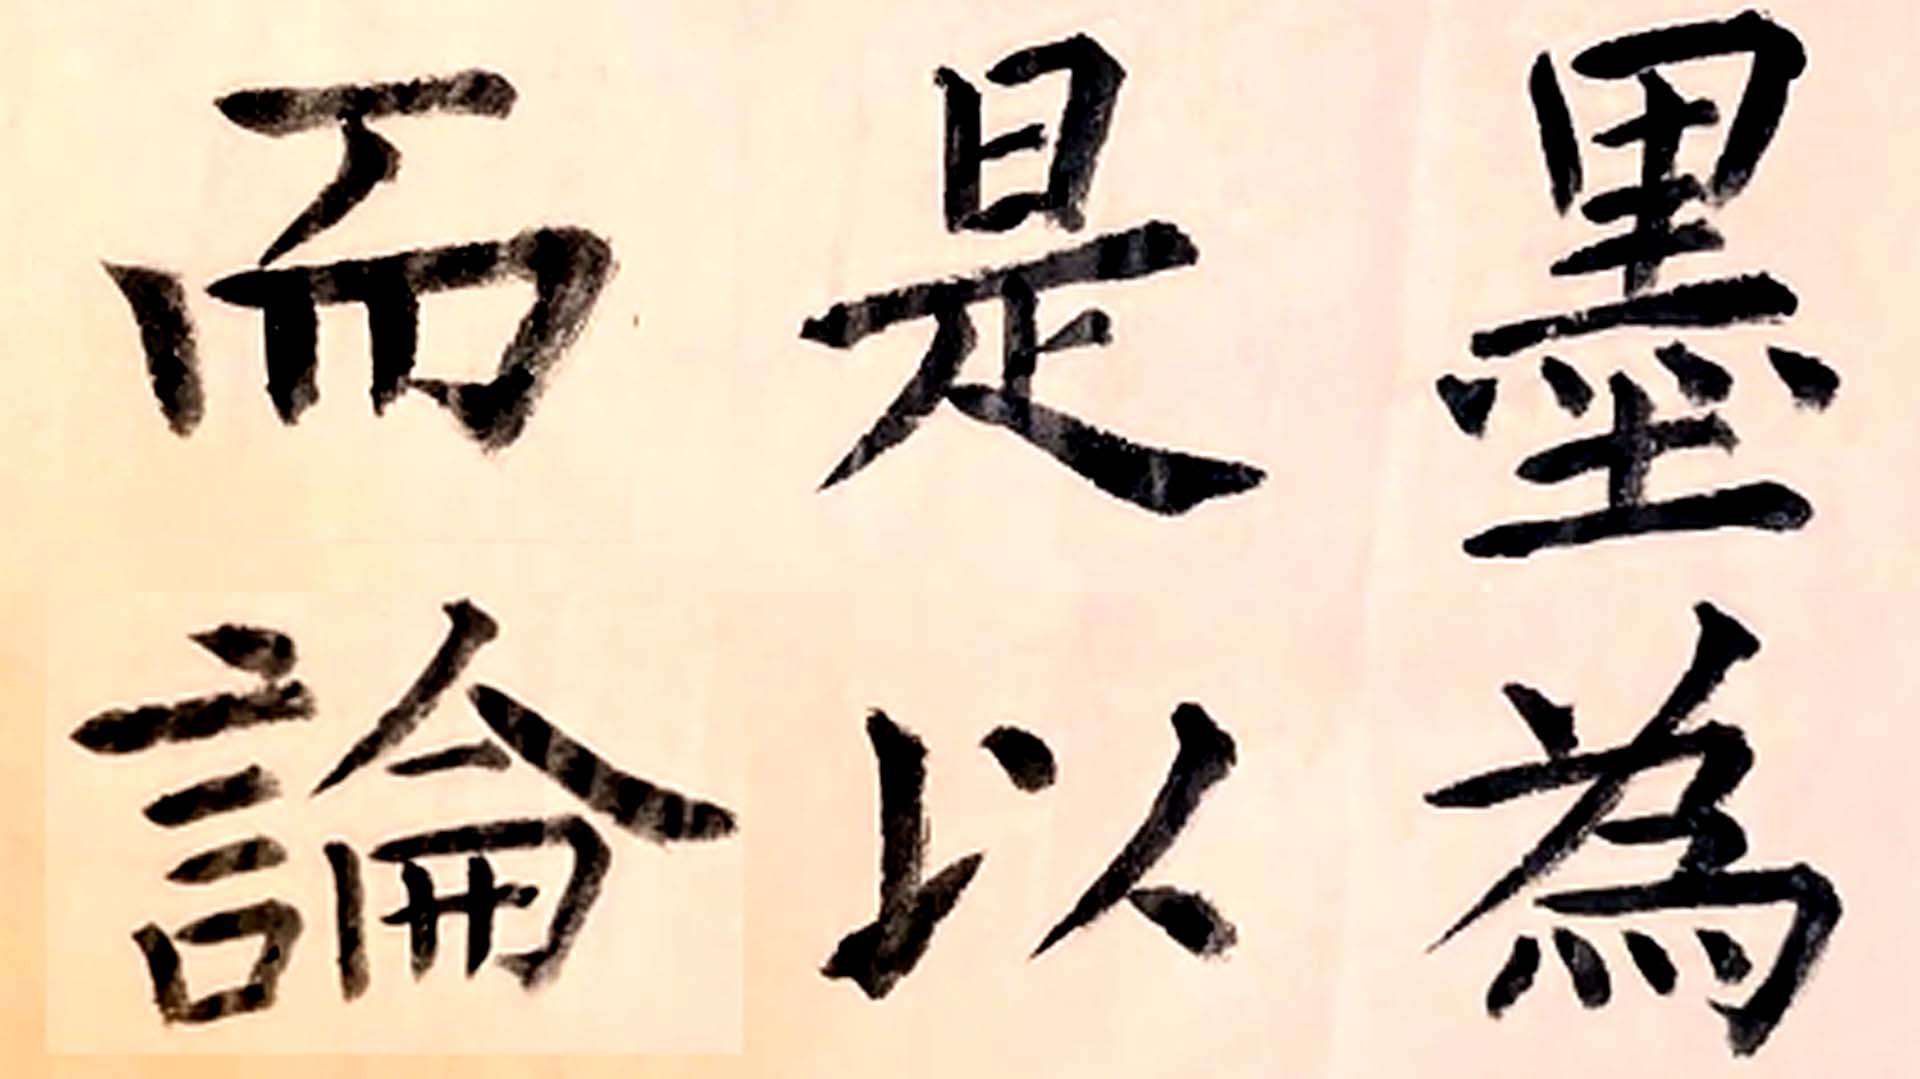 墨為
是以
而論